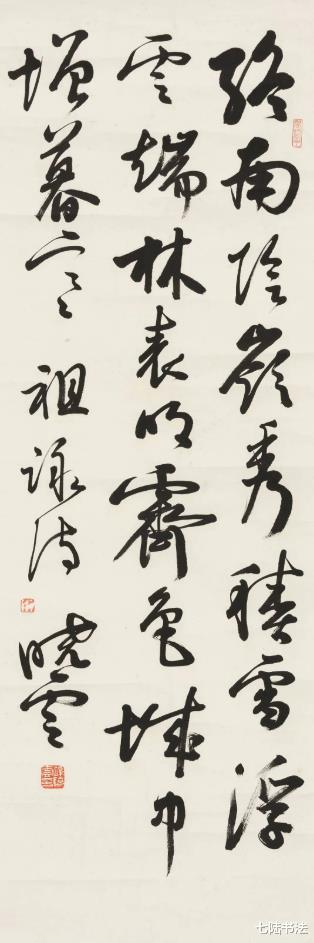 終南陰嶺秀積雪浮
雲端林表明霽色城中
增暮寒 祖詠詩 曉雲
七陆书法